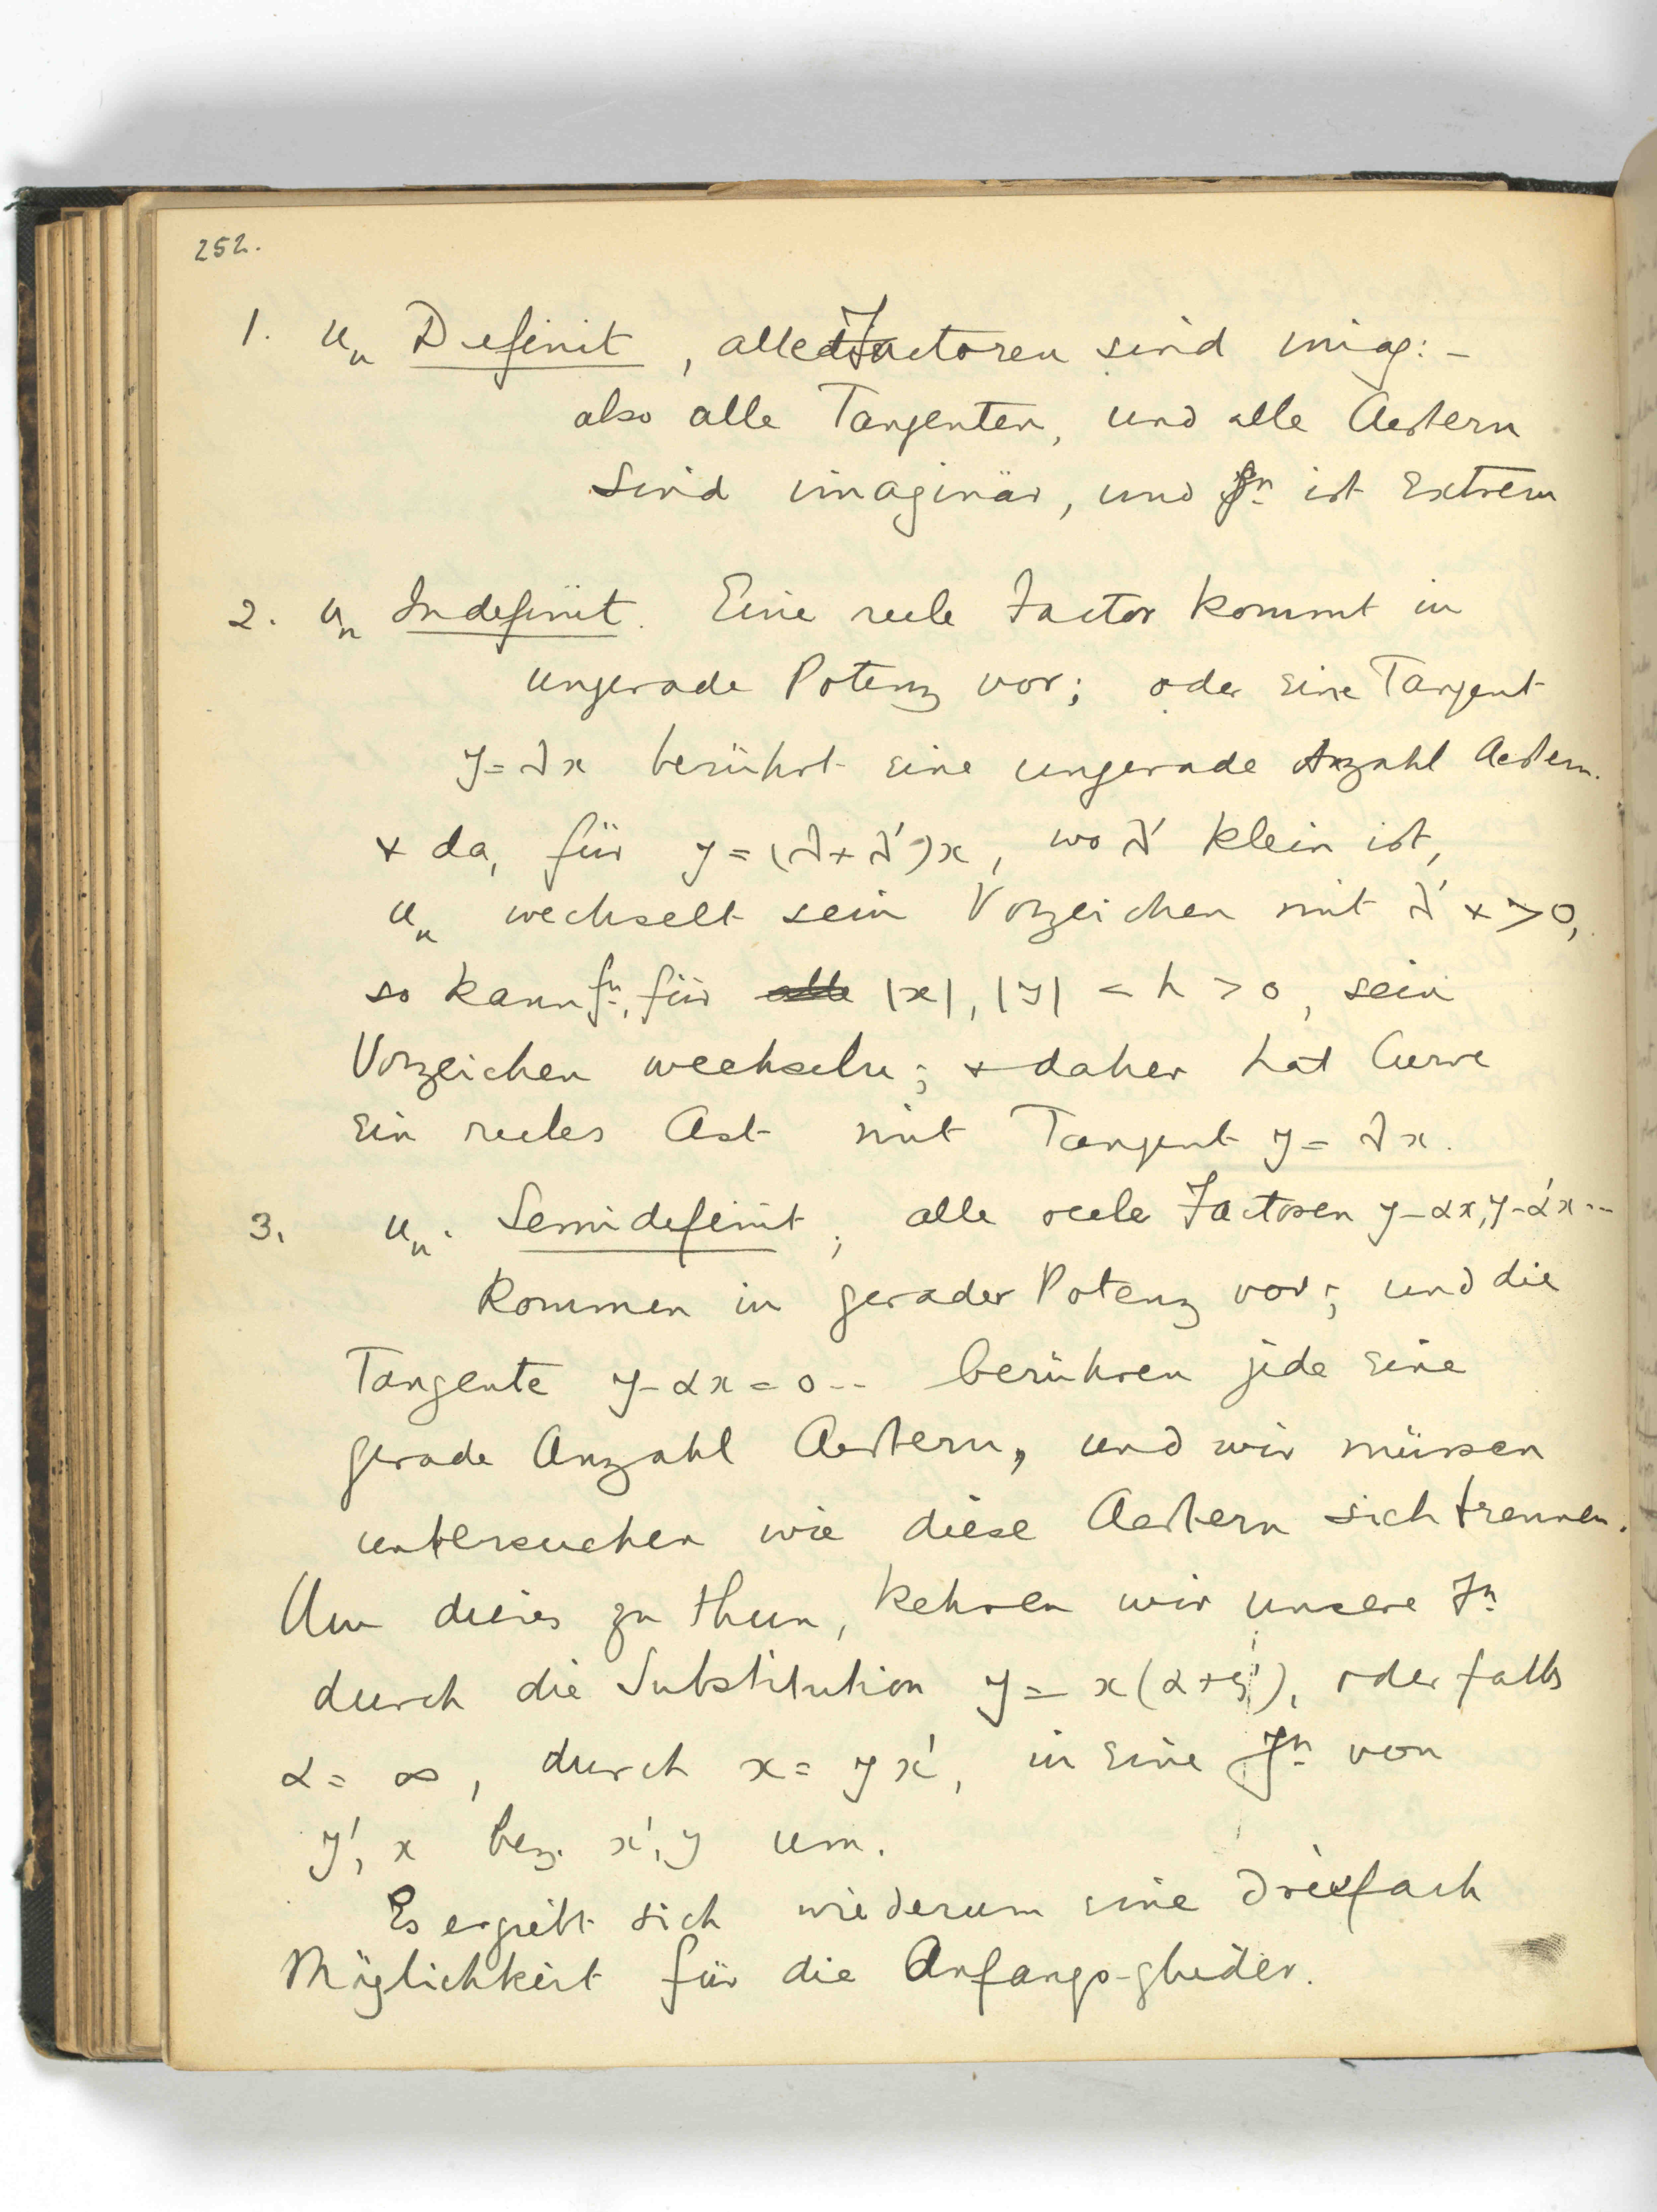 252.
1. u_n Definit, alle Factoren sind imag: -
also alle Tangenten, und alle Aestern
sind imaginär, und fⁿ ist Extrem
2. u_n Indefinit. Eine reele Factor kommt in
ungerade Potenz vor; oder eine Tangent
y=λx berührt eine ungerade Anzahl Aestern.
+ da, für y=(λ+λ')x, wo λ' klein ist,
u_n wechselt sein Vorzeichen mit λ' x>0,
so kann fⁿ, für alle |x|, |y| < h > 0, sein
Vorzeichen wechseln; + daher hat Curve
ein reeles Ast mit Tangent y= λx.
3. u_n. Semidefinit; alle reele Factoren y-αx, y-α'x...
kommen in gerader Potenz vor; und die
Tangente y-αx=0.. berühren jede eine
gerade Anzahl Aestern, und wir müssen
untersuchen wie diese Aestern sich trennen.
Um dieses zu thun, kehren wir unsere Fⁿ
durch die Substitution y= x(α+y'), oder falls
α= ∞, durch x= yx', in eine Fⁿ von
y', x bez. x', y um.
Es ergiebt sich wiederum eine dreifach
Möglichkeit für die Anfangs-glieder.